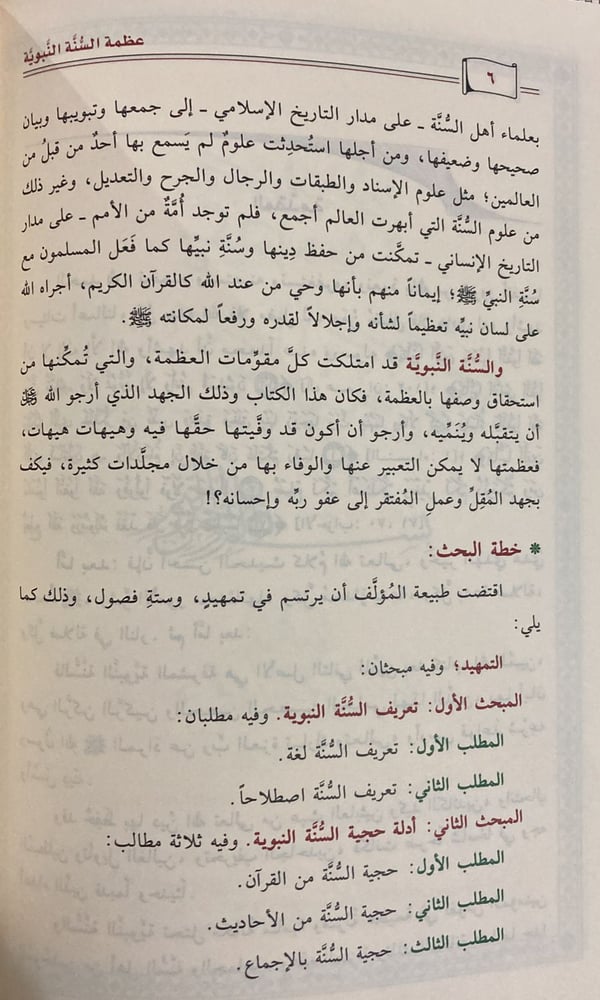 عظمة السُّنَّة النَّبويَّة
٦
بعلماء أهل السُّنَّة ـ على مدار التاريخ الإسلامي ـ إلى جمعها وتبويبها وبيان
صحيحها وضعيفها، ومن أجلها استُحدِثت علومٌ لم يَسمع بها أحدٌ من قبلُ من
العالمين؛ مثل علوم الإسناد والطبقات والرجال والجرح والتعديل، وغير ذلك
من علوم السُّنَّة التي أبهرت العالم أجمع، فلم توجد أُمَّةٌ من الأمم ـ على مدار
التاريخ الإنساني ـ تمكَّنت من حفظ دِينها وسُنَّةِ نبيِّها كما فَعَل المسلمون مع
سُنَّةِ النبيِّ ﷺ؛ إيماناً منهم بأنها وحي من عند الله كالقرآن الكريم، أجراه الله
على لسان نبيِّه تعظيماً لشأنه وإجلالاً لقدره ورفعاً لمكانته ﷺ.
والسُّنَّة النَّبويَّة قد امتلكت كلَّ مقوِّمات العظمة، والتي تُمكِّنها من
استحقاق وصفها بالعظمة، فكان هذا الكتاب وذلك الجهد الذي أرجو الله ﷻ
أن يتقبَّله ويُنَمِّيه، وأرجو أن أكون قد وفَّيتها حقَّها فيه وهيهات هيهات،
فعظمتها لا يمكن التعبير عنها والوفاء بها من خلال مجلَّدات كثيرة، فيكف
بجهد المُقِلِّ وعملِ المُفتقر إلى عفو ربِّه وإحسانه؟!
* خطة البحث:
اقتضت طبيعة المُؤلَّف أن يرتسم في تمهيدٍ، وستةِ فصول، وذلك كما
يلي:
التمهيد؛ وفيه مبحثان:
المبحث الأول: تعريف السُّنَّة النبوية. وفيه مطلبان:
المطلب الأول: تعريف السُّنَّة لغة.
المطلب الثاني: تعريف السُّنَّة اصطلاحاً.
المبحث الثاني: أدلة حجية السُّنَّة النبوية. وفيه ثلاثة مطالب:
المطلب الأول: حجية السُّنَّة من القرآن.
المطلب الثاني: حجية السُّنَّة من الأحاديث.
المطلب الثالث: حجية السُّنَّة بالإجماع.